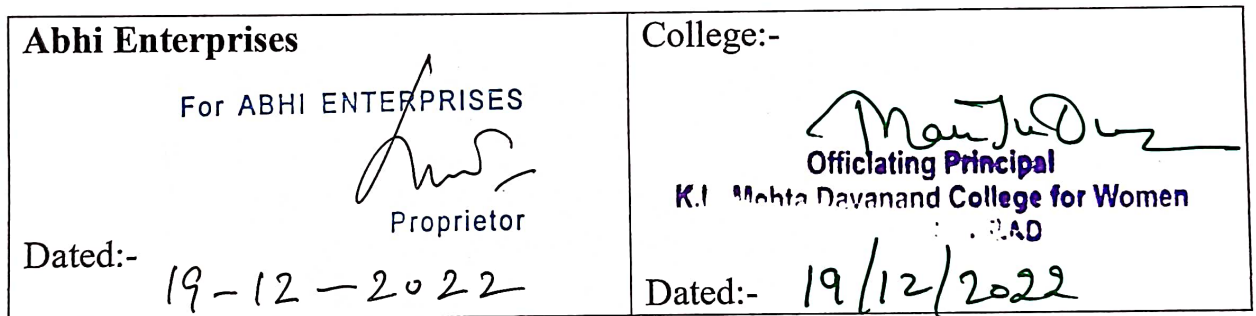 Abhi Enterprises
For ABHI ENTERPRISES
Proprietor
Dated:-
19-12-2022
College:-
Officiating Principal
Mehta Dayanand College for Women
Dated:- 19/12/2022